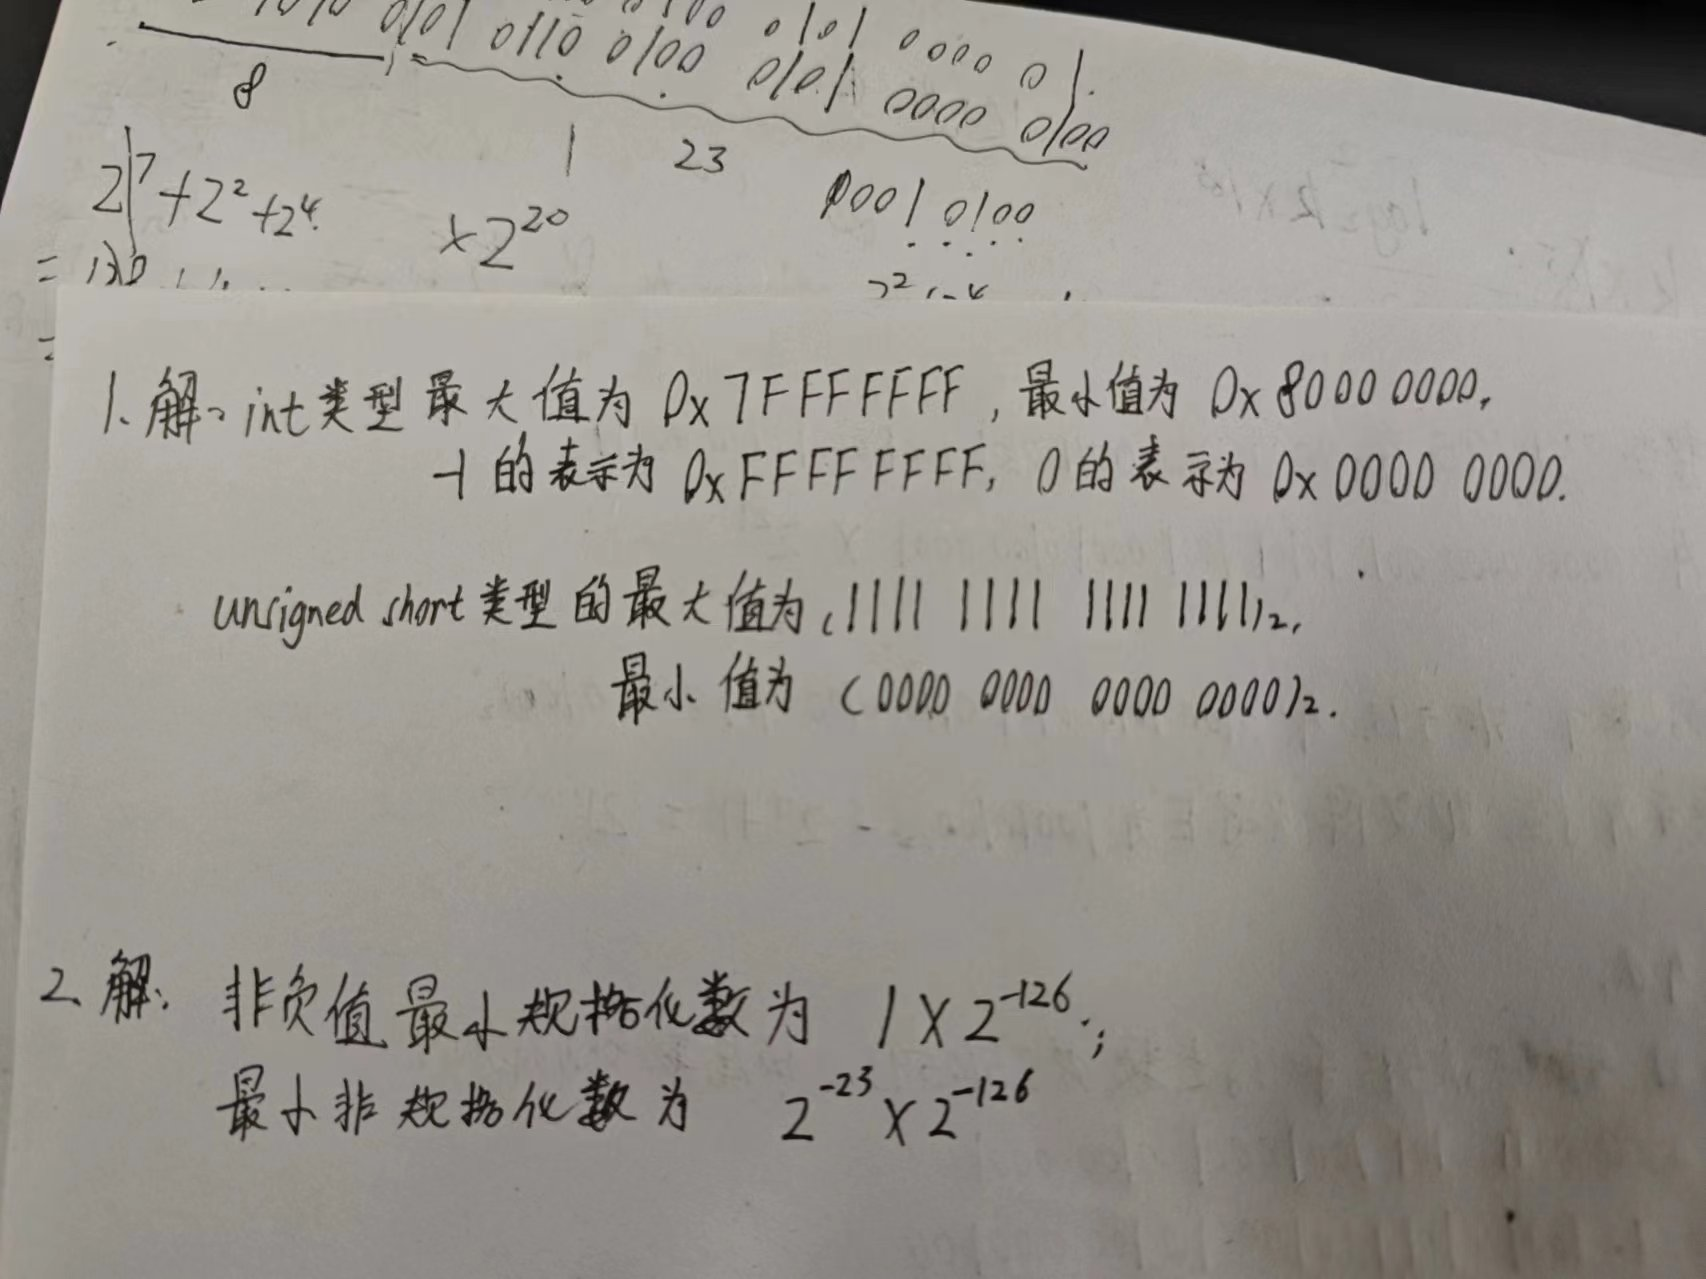 0101 0110 0100 0101 0000 0100
0101 0000 01.
8
1 23
2^7+2^2+2^4.
×2^20
0001 0100
1.解: int类型最大值为 0x7FFFFFFF, 最小值为 0x8000 0000,
-1的表示为 0xFFFF FFFF, 0的表示为 0x0000 0000.
unsigned short类型的最大值为(1111 1111 1111 1111)2,
最小值为 (0000 0000 0000 0000)2.
2.解: 非负值最小规格化数为 1×2^-126;
最小非规格化数为 2^-23×2^-126